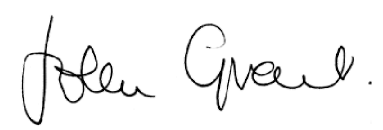 John Grant.